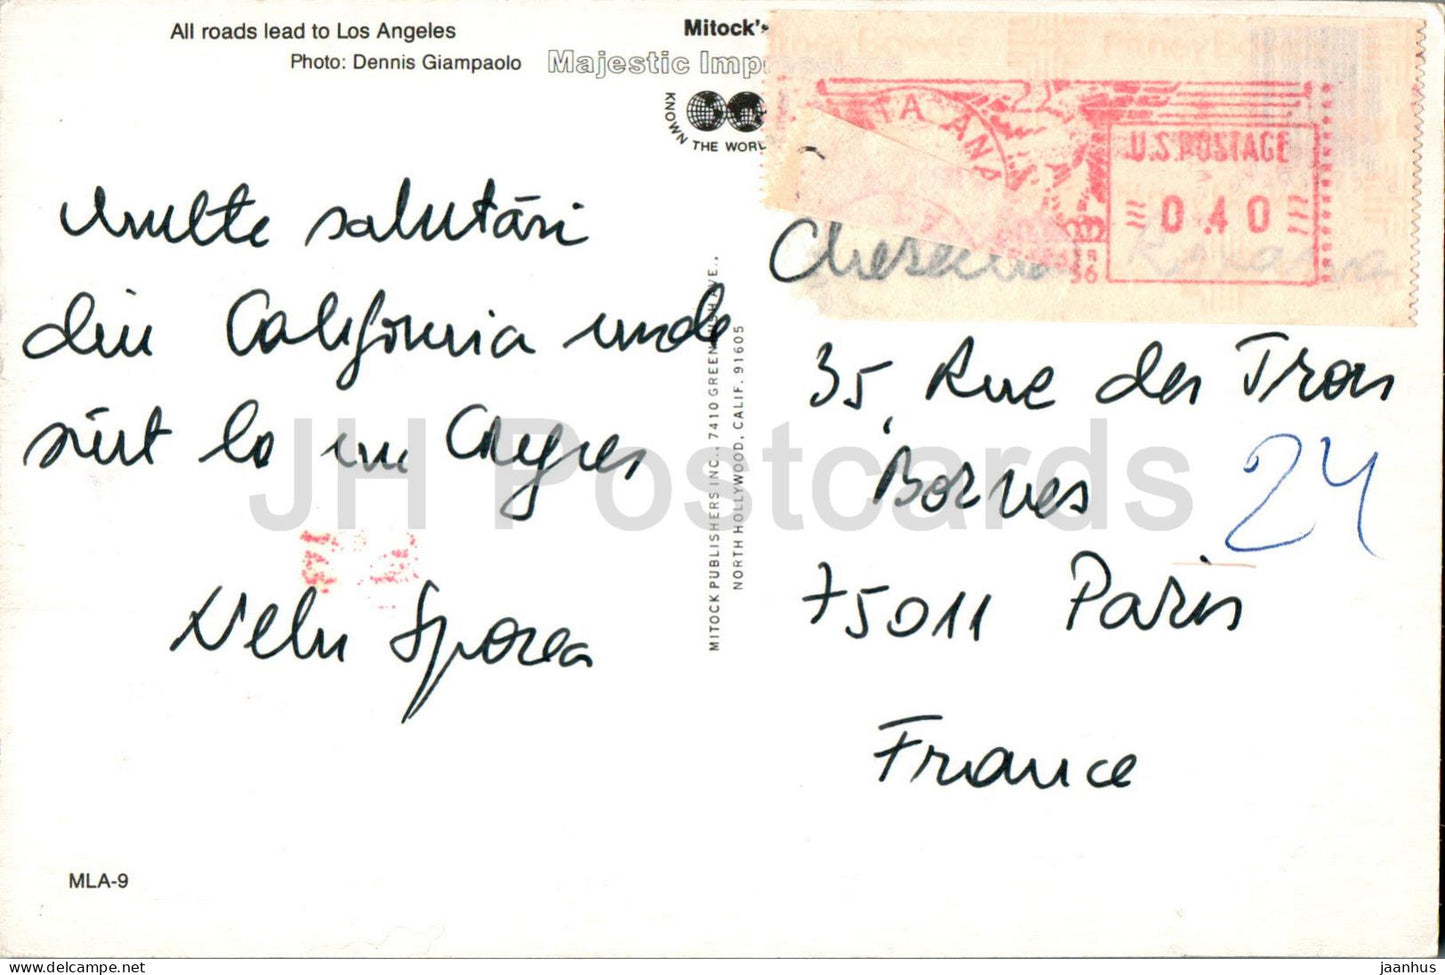 All roads lead to Los Angeles
Photo: Dennis Giampaolo
Mitock's
Majestic Imp
KNOWN THE WORL
TA ANA
U.S. POSTAGE
0.40
Multe salutări
din California unde
sînt la un Congres
Nelu Sporea
MITOCK PUBLISHERS INC., 7410 GREENBUSH AVE.,
NORTH HOLLYWOOD, CALIF. 91605
35, Rue des Trois
Bornes
24
75011 Paris
France
MLA-9
JH Postcards
jaanhus
delcampe.net